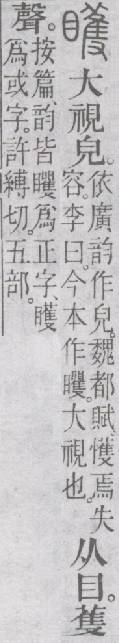 矆大視皃。依廣韵作皃。魏都賦。戄焉失
容。李曰。今本作矆。大視也。从目。蒦
聲。按篇韵皆矆爲正字、矆
爲或字。許縛切。五部。